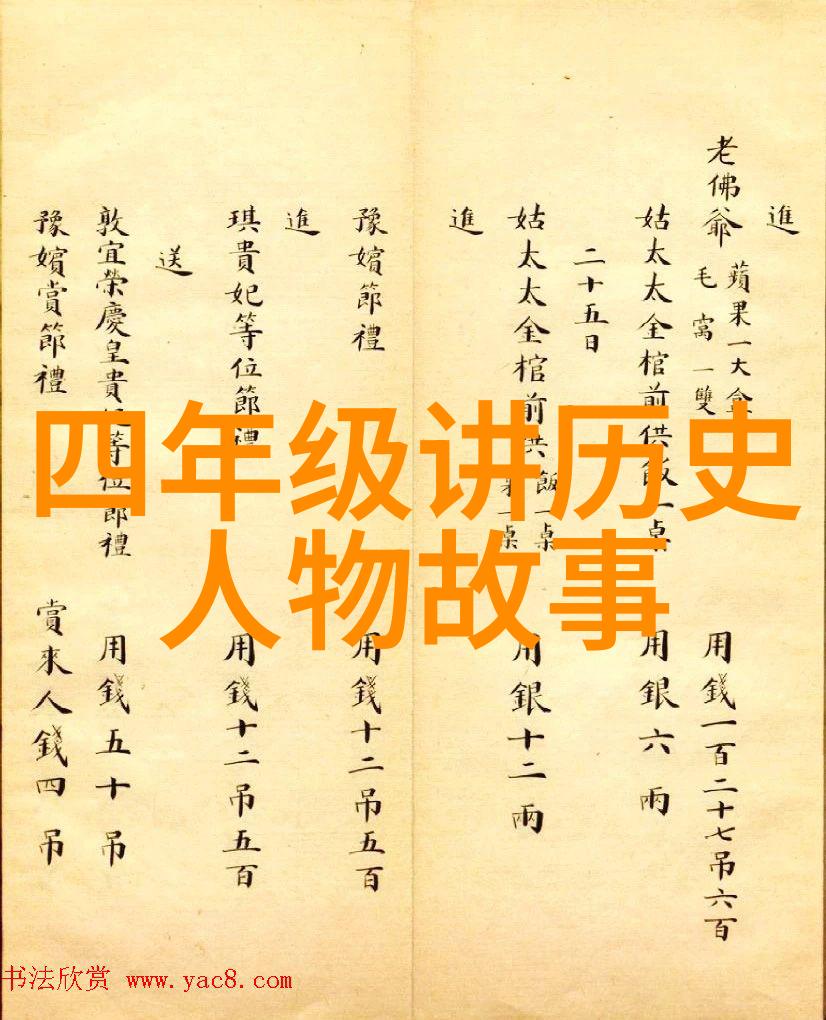 進
老佛爺 蘋果一大盒
毛窩一雙 用錢一百二十七吊六百
姑太太金棺前供飯一桌 用銀六兩
二十五日
姑太太金棺前供 飯一桌
一桌 用銀十二兩
進
豫嬪節禮 用錢十二吊五百
進
琪貴妃等位節禮 用錢十二吊五百
送
敦宜榮慶皇貴妃等位節禮 用錢五十吊
豫嬪賞節禮 賞來人錢四吊
四年级讲历史
人物故事
书法欣赏 www.yac8.com